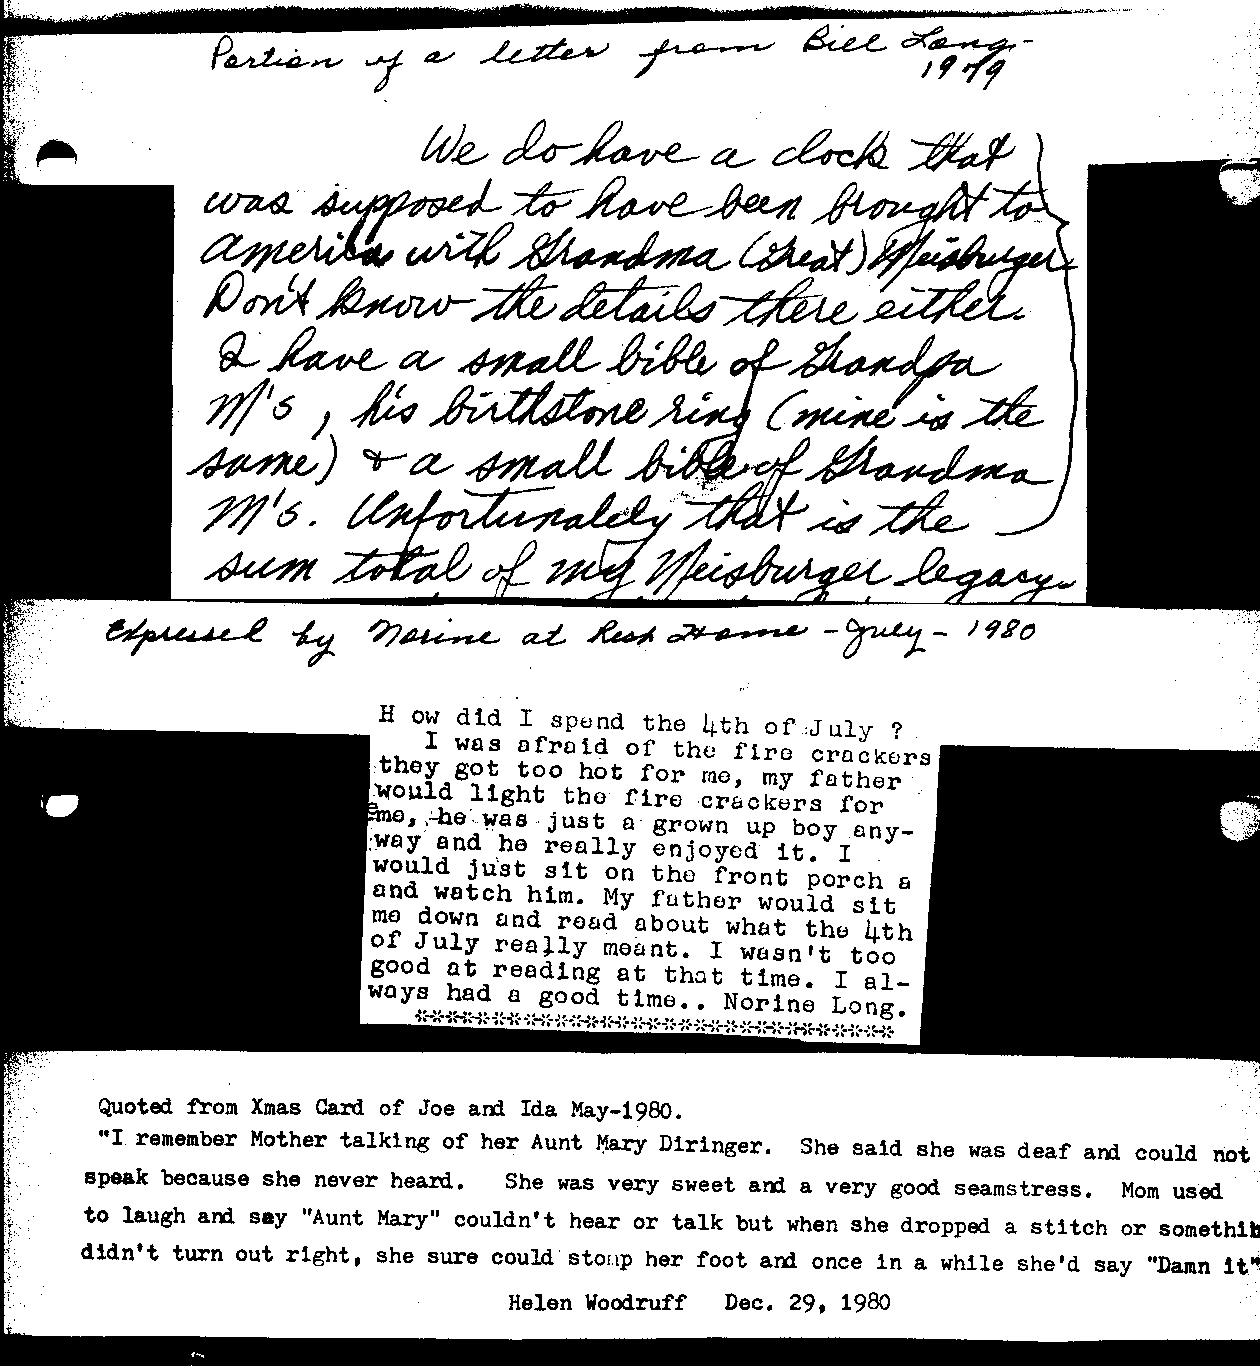 Portion of a letter from Bill Long -
1979
We do have a clock that
was supposed to have been brought to
America with Grandma (Great) Meisburger.
Don't know the details there either.
I have a small bible of Grandpa
M's, his birthstone ring (mine is the
same) & a small bible of Grandma
M's. Unfortunately that is the
sum total of my Meisburger legacy.
Expressed by Norine at Rest Home - July - 1980
H ow did I spend the 4th of July ?
I was afraid of the fire crackers
they got too hot for me, my father
would light the fire crackers for
me, he was just a grown up boy any-
way and he really enjoyed it. I
would just sit on the front porch a
and watch him. My father would sit
me down and read about what the 4th
of July really meant. I wasn't too
good at reading at that time. I al-
ways had a good time.. Norine Long.
Quoted from Xmas Card of Joe and Ida May-1980.
"I remember Mother talking of her Aunt Mary Diringer. She said she was deaf and could not
speak because she never heard. She was very sweet and a very good seamstress. Mom used
to laugh and say "Aunt Mary" couldn't hear or talk but when she dropped a stitch or somethin
didn't turn out right, she sure could stomp her foot and once in a while she'd say "Damn it"
Helen Woodruff Dec. 29, 1980